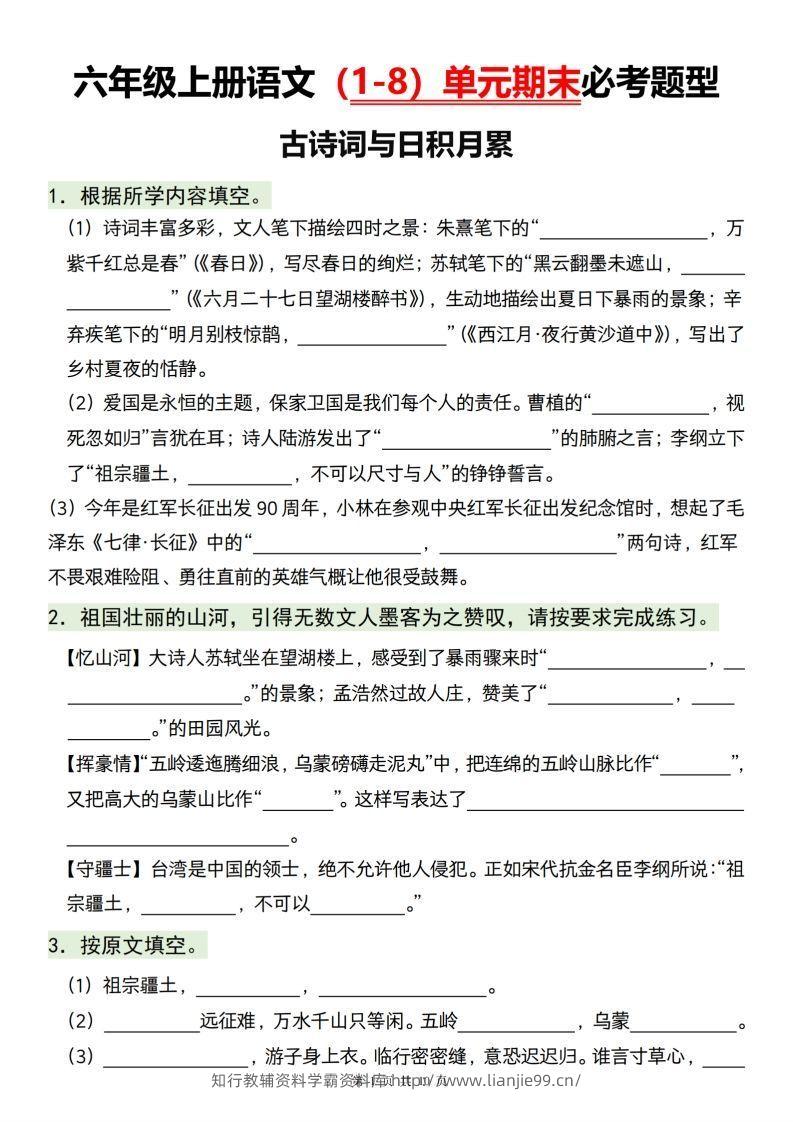 六年级上册语文（1-8）单元期末必考题型
古诗词与日积月累
1. 根据所学内容填空。
（1）诗词丰富多彩，文人笔下描绘四时之景：朱熹笔下的“________________，万
紫千红总是春”（《春日》），写尽春日的绚烂；苏轼笔下的“黑云翻墨未遮山，______
__________”（《六月二十七日望湖楼醉书》），生动地描绘出夏日下暴雨的景象；辛
弃疾笔下的“明月别枝惊鹊，______________”（《西江月·夜行黄沙道中》），写出了
乡村夏夜的恬静。
（2）爱国是永恒的主题，保家卫国是我们每个人的责任。曹植的“___________，视
死忽如归”言犹在耳；诗人陆游发出了“________________”的肺腑之言；李纲立下
了“祖宗疆土，__________，不可以尺寸与人”的铮铮誓言。
（3）今年是红军长征出发 90 周年，小林在参观中央红军长征出发纪念馆时，想起了毛
泽东《七律·长征》中的“________________，________________”两句诗，红军
不畏艰难险阻、勇往直前的英雄气概让他很受鼓舞。
2. 祖国壮丽的山河，引得无数文人墨客为之赞叹，请按要求完成练习。
【忆山河】大诗人苏轼坐在望湖楼上，感受到了暴雨骤来时“_______________，__
________________。”的景象；孟浩然过故人庄，赞美了“____________，____
________。”的田园风光。
【挥豪情】“五岭逶迤腾细浪，乌蒙磅礴走泥丸”中，把连绵的五岭山脉比作“_______”，
又把高大的乌蒙山比作“_______”。这样写表达了__________________________
_____________________。
【守疆士】台湾是中国的领士，绝不允许他人侵犯。正如宋代抗金名臣李纲所说：“祖
宗疆土，_________，不可以_________。”
3. 按原文填空。
（1）祖宗疆土，__________，________________。
（2）_________远征难，万水千山只等闲。五岭___________，乌蒙__________。
（3）______________，游子身上衣。临行密密缝，意恐迟迟归。谁言寸草心，____
知行教辅资料学霸资料库http://www.lianjie99.cn/